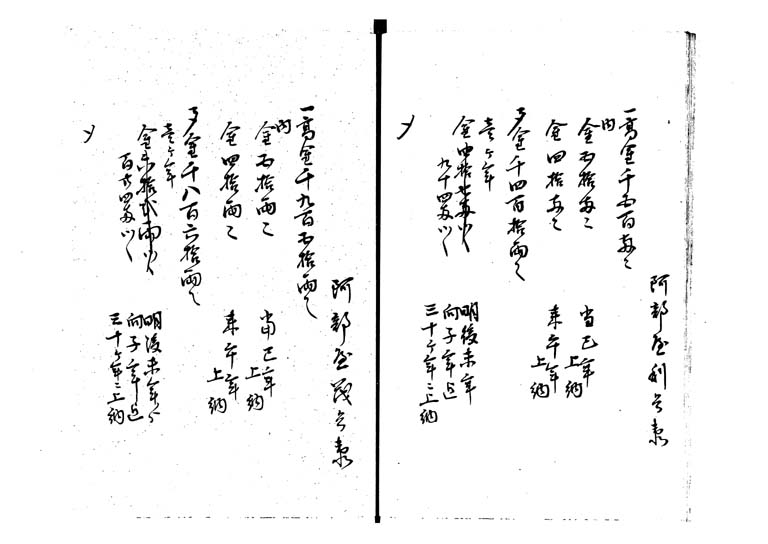 阿部屋利兵衛
一高金千五百両也
内
金五拾両也 当巳年上納
金四拾両也 来午年上納
〆金千四百拾両也
壱ヶ年
金四拾七両ツヽ
九十四両ツヽ
明後未年
向子年迄
三十ヶ年ニ上納
〆
阿部屋茂兵衛
一高金千九百五拾両也
内
金五拾両也 当巳年上納
金四拾両也 来午年上納
〆金千八百六拾両也
壱ヶ年
金六拾弐両ツヽ
百廿四両ツヽ
明後未年ゟ
向子年迄
三十ヶ年ニ上納
〆